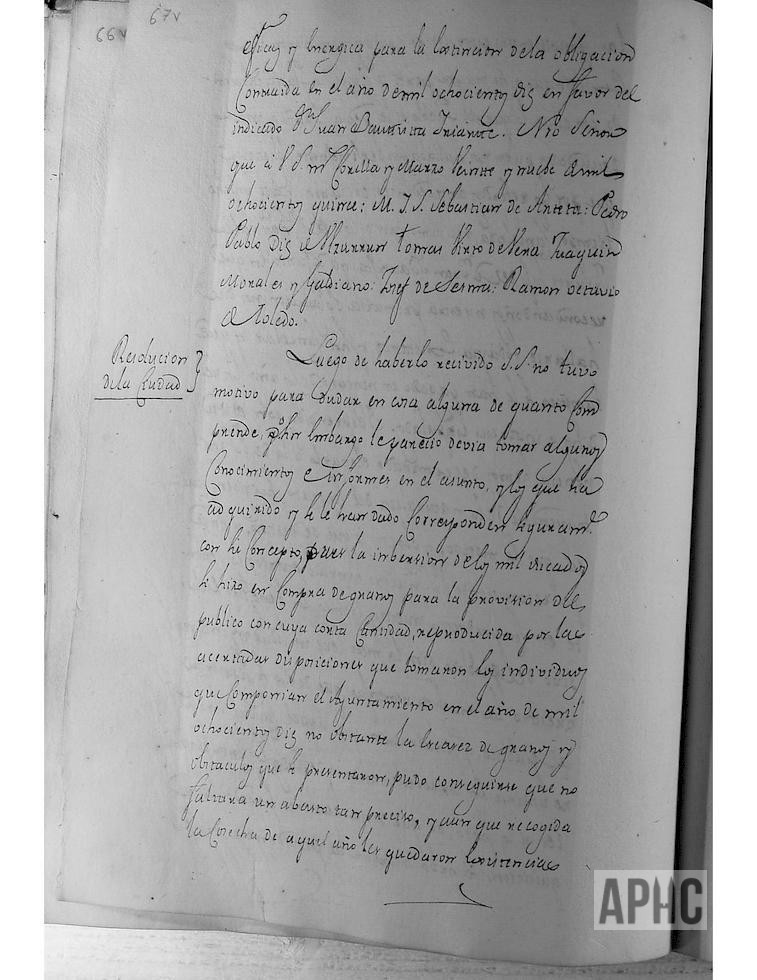 66v 67v
eficaz y energica para la extincion dela obligacion
Contraida en el año demil ochocientos diez en favor del
indicado Dn Juan Bautista Iriarte. Nro Señor
que a V.S. ms Corella y Marzo Veinte y nuebe de mil
ochocientos quince: M. I. S. Sebastian de Anteta: Pedro
Pablo Diez de Ulzurrun Tomas Virto de Vera Juaquin
Morales y Galdiano: Josef de Sesma: Ramon octavio
de Toledo.
Resolucion
dela Ciudad
Luego de haberlo recivido S.S. no tuvo
motivo para dudar en cosa alguna de quanto Com
prende, sin embargo le parecio devia tomar algunos
Conocimientos e informes en el asunto, y los que ha
adquirido y se le han dado Corresponden seguramte
con se Concepto, pues la imbersion delos mil ducados
se hizo en Compra de granos para la provision del
publico con cuya corta Cantidad, reproducida por las
acertadas disposiciones que tomaron los individuos
que Componian el Ayuntamiento en el año de mil
ochocientos diez no obstante la escasez de granos y
obstaculos que se presentaron, pudo conseguirse que no
faltara un abasto tan preciso, y aun que recogida
la Cosecha de aquel año les quedaron existencias
APHC